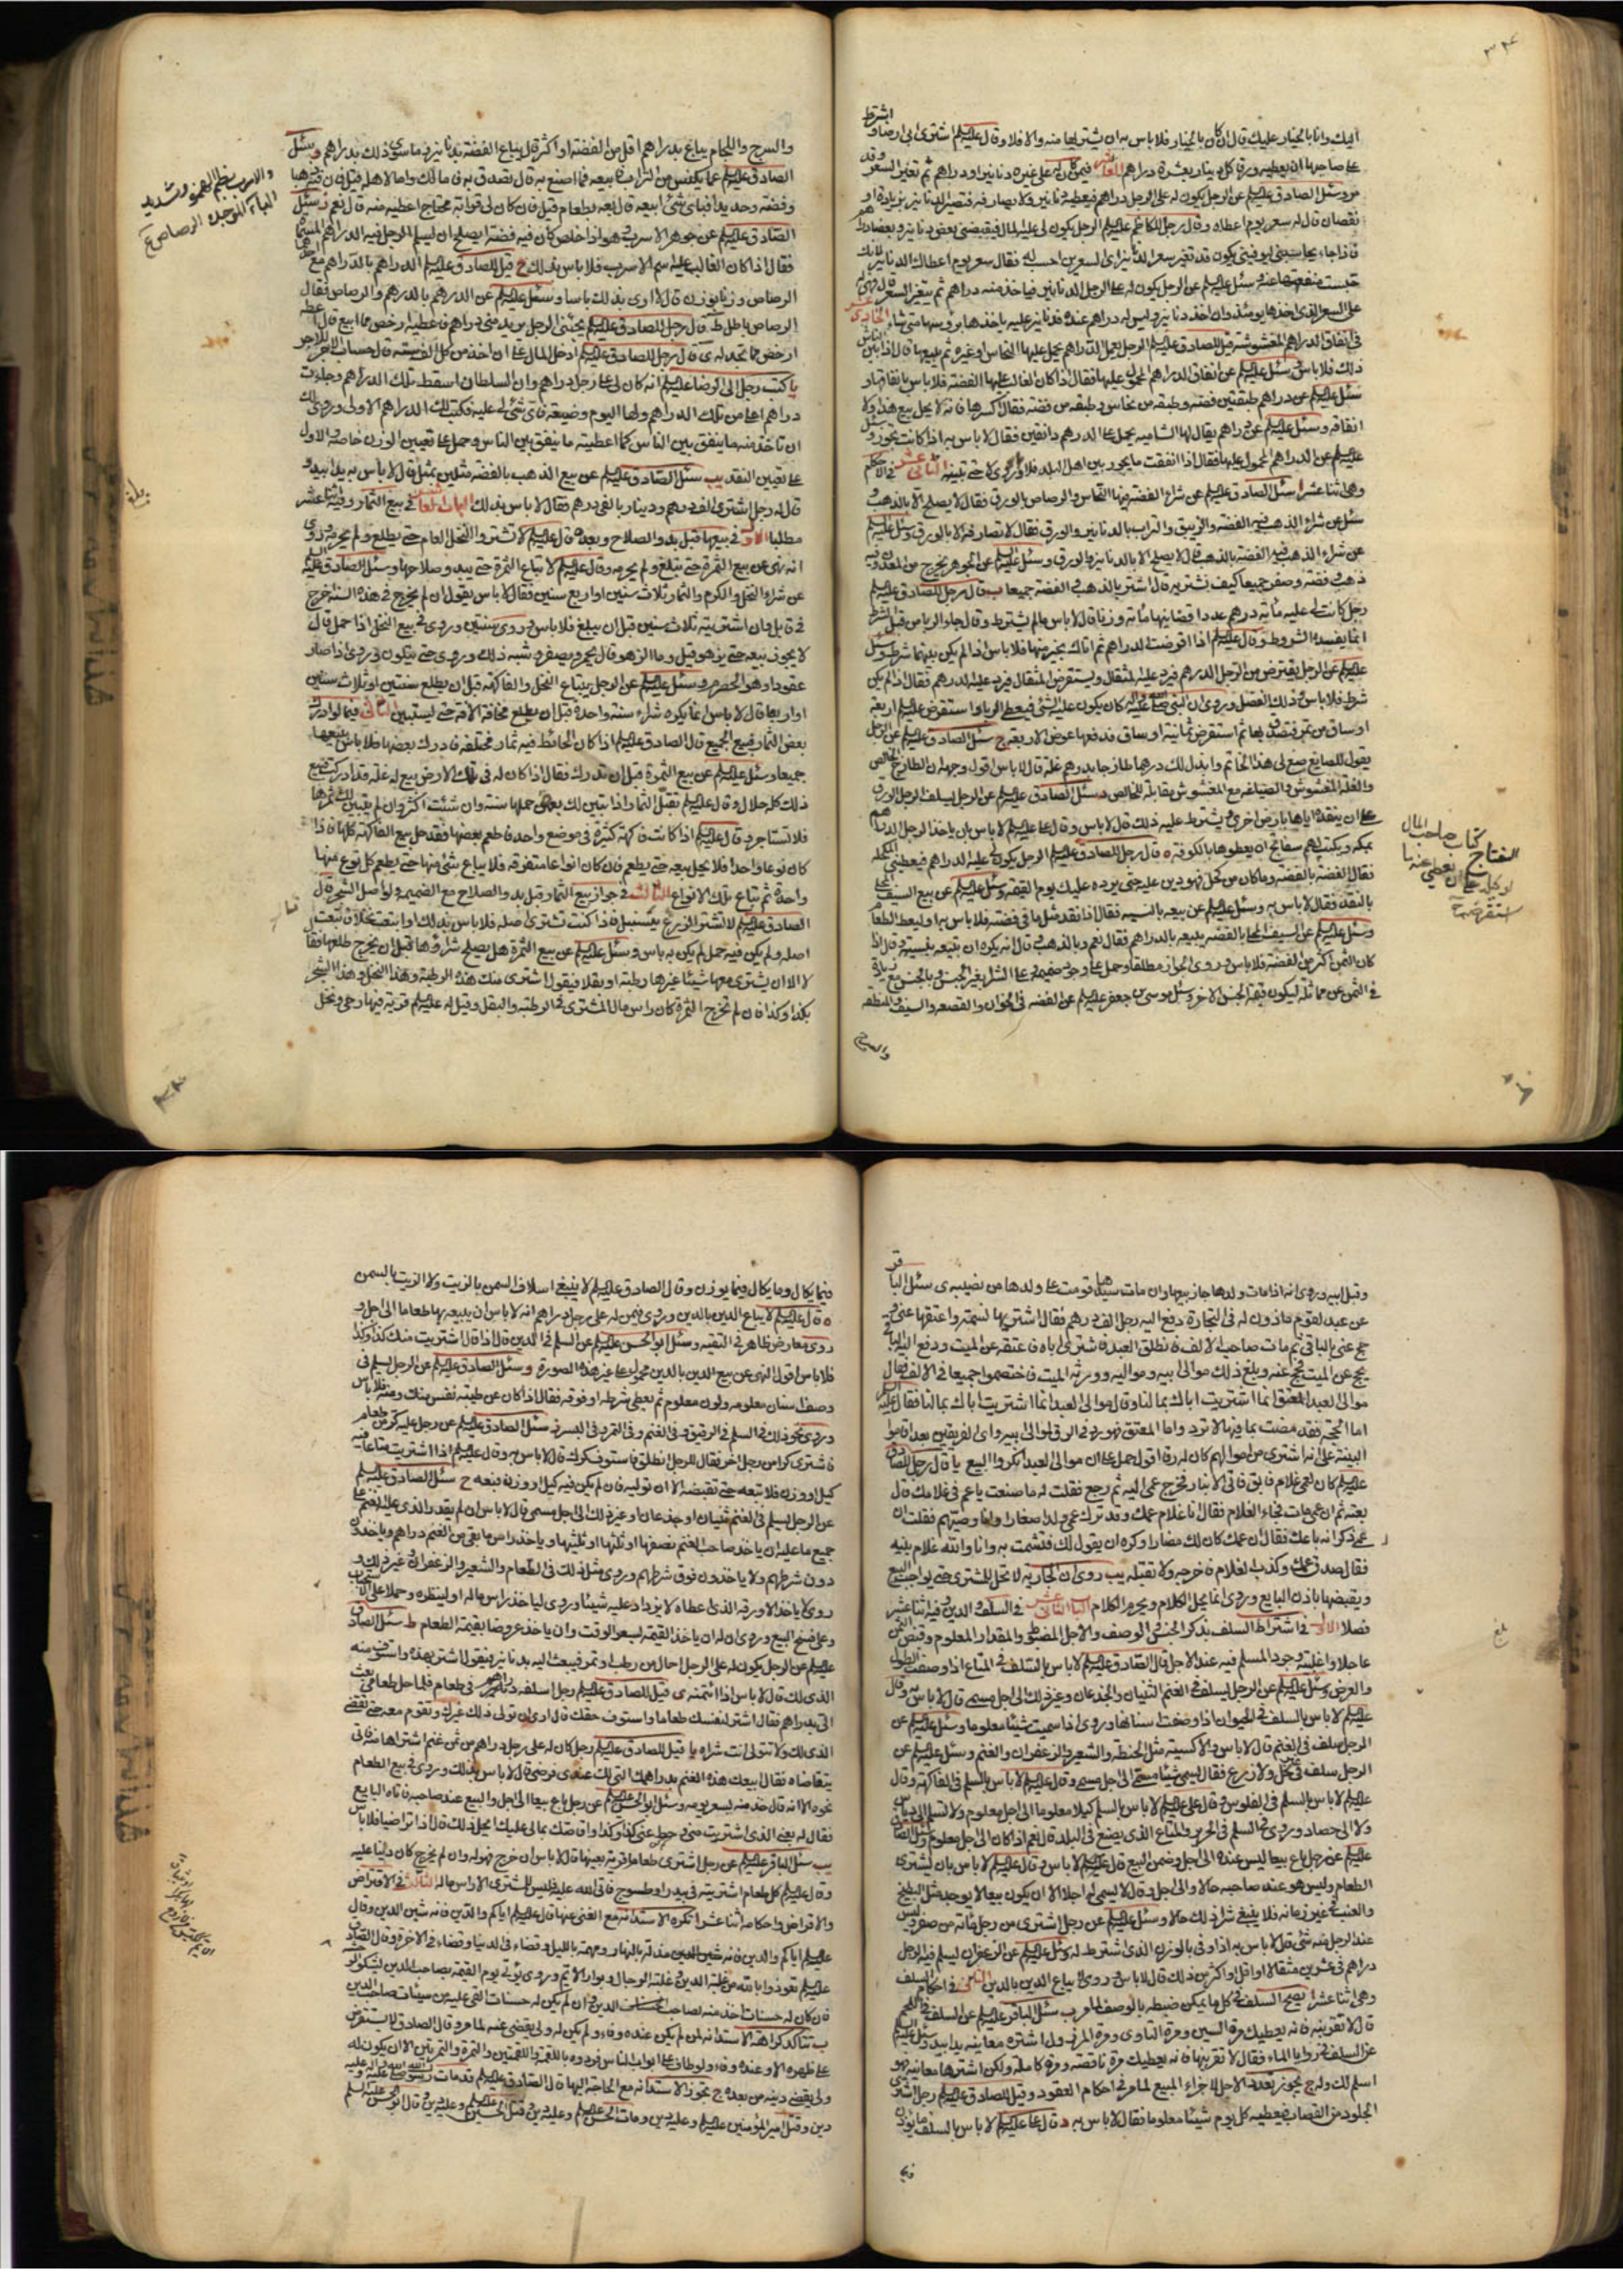 اليك وانا بالخيار عليك قال ان كان بالخيار فلا باس به ان يشتريها منه والا فلا وقال عليه السلم اشترى ابى ارضا و
على صاحبها ان يعطيه ورقا كل دينار بعشرة دراهم العاشر فيمن كان له على غيره دنانير او دراهم ثم تغير السعر وقد
مر وسئل الصادق عليه السلم عن الرجل يكون له على الرجل دراهم فيعطيه دنانير
نقصان قال له سعر يوم اعطاه وقال رجل للكاظم عليه السلم الرجل يكون لى عليه المال فيقبضنى بعض دنانير وبعضا دراهم
فاذا جاء يحاسبنى ليوفينى يكون قد تغير سعر الدنانير اى السعرين احسب له فقال سعر يوم اعطاك الدنانير لانك
حبست منفعتها عنه وسئل عليه السلم عن الرجل يكون له على الرجل الدنانير فياخذ منه دراهم ثم يتغير السعر قال فهى له
على السعر الذى اخذها يومئذ وان اخذ دنانير وليس له دراهم عنده فدنانير عليه ياخذها برؤسها متى شاء الحادى عشر
فى انفاق الدراهم المغشوشة قيل للصادق عليه السلم الرجل يعمل الدراهم يحمل عليها النحاس او غيره ثم يبيعها قال اذا بين الناس
ذلك فلا باس وسئل عليه السلم عن انفاق الدراهم المحمول عليها فقال اذا كان الغالب عليها الفضة فلا باس بانفاقها و
سئل عليه السلم عن دراهم طبقتين فضة وطبقه من نحاس وطبقه من فضه فقال اكسرها فانه لا يحل بيع هذا ولا
انفاقه وسئل عليه السلم عن دراهم يقال لها الشاميه يحمل على الدرهم دانقين فقال لا باس به اذا كانت تجوز وسئل
عليه السلم عن الدراهم المحمول عليها فقال اذا انفقت ما يجوز بين اهل البلد فلا باس وروى لا حتى تبينه الثانى عشر فى الاحكام
وهى اثنا عشر ا سئل الصادق عليه السلم عن شراء الفضة فيها النحاس والرصاص بالورق فقال لا يصلح الا بالذهب و
سئل عن شراء الذهب فيه الفضة والزيبق والتراب بالدنانير والورق فقال لا تصارفه الا بالورق وسئل عليه السلم
عن شراء الذهب فيه الفضة بالذهب قال لا يصلح الا بالدنانير والورق وسئل عليه السلم عن الجوهر يخرج من المعدن وفيه
ذهب وفضة وصفر جميعا كيف نشتريه قال اشتر بالذهب والفضة جميعا ب قال رجل للصادق عليه السلم
رجل كانت لى عليه مائة درهم عددا قضانيها مائة وزنا قال لا باس ما لم يشترط وقال جاء الربا من قبل الشروط
انما يفسده الشروط وقال عليه السلم اذا اقرضت الدراهم ثم اتاك بخير منها فلا باس اذا لم يكن بينكما شرط وسئل
عليه السلم عن الرجل يقترض من الرجل الدرهم فيرد عليه المثقال ويستقرض المثقال فيرد عليه الدرهم فقال اذا لم يكن
شرط فلا باس وذلك الفضل وروى ان النبى صلى الله عليه واله كان يكون عليه الثنى فيعطى الرباع
يقول للصايغ صغ لى هذا الخاتم وابدل لك درهما طازجا بدرهم غله قال لا باس اقول وجهه ان الطازج الخالص
والغله المغشوش والصياغه مع المغشوش مقابلة للخالص د سئل الصادق عليه السلم عن الرجل يسلف الرجل الورق
على ان ينقدها اياها بارض اخرى ويشترط عليه ذلك قال لا باس وقال على عليه السلم لا باس بان ياخذ الرجل الدراهم
بمكه ويكتب لهم سفاتج ان يعطوها بالكوفة ه قال رجل للصادق عليه السلم الرجل يكون لى عليه الدراهم فيعطينى المكحله
فقال الفضة بالفضه وما كان من كحل فهو دين عليه حتى يرده عليك يوم القيمه وسئل عليه السلم عن بيع السيف المحلى
بالنقد فقال لا باس به وسئل عليه السلم عن بيعه بالنسيه فقال اذا نقد مثل ما فى فضته فلا باس به او ليعط الطعام
وسئل عليه السلم عن السيف المحلى بالفضه يبيعه بالدراهم فقال نعم وبالذهب وقال انه يكره ان تبيعه بنسية وقال اذا
كان الثمن اكثر من الفضة فلا باس وروى الجواز مطلقا وحمل على وجود ضميمه او على الشراء بغير الجنس او بالجنس مع زيادة
فى الثمن عن مماثله ليكون فى مقابلة الجنس الاخر وسئل موسى بن جعفر عليه السلم عن الفضه فى الخوان والقصعه والسيف والمنطقه
والسرج
السفتاج كتاب صاحب المال
لوكيله على ان يعطى عنه ما
استقرضه
والسرج واللجام يباع بدراهم اقل من الفضة او اكثر قال يباع الفضة بدنانير وما سوى ذلك بدراهم و سئل
الصادق عليه السلم عما يكنس من التراب فابيعه فما اصنع به قال تصدق به فاما لك واما لاهله قيل فان فيه ذهبا
وفضه وحديدا فباى شئ ابيعه قال بعه بطعام قيل فان كان لى قرابة محتاج اعطيه منه قال نعم وسئل
الصادق عليه السلم عن جوهر الاسرب وهو اذا خلص كان فيه فضة ايصلح ان يسلم الرجل فيه الدراهم المسماة
فقال اذا كان الغالب عليه اسم الاسرب فلا باس بذلك ح قيل للصادق عليه السلم الدراهم بالدراهم مع احدهما
الرصاص وزنا بوزن قال لا ارى بذلك باسا وسئل عليه السلم عن الدرهم بالدرهم والرصاص فقال
الرصاص باطل ط قال رجل للصادق عليه السلم يجيئنى الرجل يريد منى دراهم فاعطيه ارخص مما ابيع قال اعطه
ارخص مما تجد له ى قال رجل للصادق عليه السلم
يا كتب رجل الى الرضا عليه السلم انه كان لى على رجل دراهم وان السلطان اسقط تلك الدراهم وجاءت
دراهم اعلى من تلك الدراهم ولها اليوم وضيعة فاى شئ لى عليه فكتب لك الدراهم الاولى وروى لك
ان تاخذ منه ما ينفق بين الناس كما اعطيته ما ينفق بين الناس وحمل على تعيين الوزن خاصة والاول
على تعيين النقد يب سئل الصادق عليه السلم عن بيع الذهب بالفضه مثلين بمثل قال لا باس به يدا بيد و
قال له رجل اشترى الف درهم ودينار بالفى درهم فقال لا باس بذلك الباب العاشر فى بيع الثمار وفيه اثنا عشر
مطلبا الاول فى بيعها قبل بدو الصلاح وبعده قال عليه السلم لا تشتروا النخل العام حتى يطلع ولم يحرمه وروى
انه نهى عن بيع الثمرة حتى تبلغ ولم يحرمه وقال عليه السلم لا تباع الثمرة حتى يبدو صلاحها وسئل الصادق عليه السلم
عن شراء النخل والكرم والثمار ثلاث سنين او اربع سنين فقال لا باس يقول ان لم يخرج فى هذه السنة خرج
فى قابل وان اشتريته ثلاث سنين قبل ان يبلغ فلا باس وروى سنتين وروى فى بيع النخل اذا حمل قال
لا يجوز بيعه حتى يزهو قيل وما الزهو قال يحمر ويصفر وشبه ذلك وروى حتى يتلون وروى اذا صار
عقودا وهو الحصرم وسئل عليه السلم عن الرجل يبتاع النخل والفاكهه قبل ان يطلع سنتين او ثلاث سنين
او اربعا قال لا باس انما يكره شراء سنة واحدة قبل ان يطلع مخافة الافة حتى يستبين الثانى فيما لو ادرك
بعض الثمار فبيع الجميع قال الصادق عليه السلم اذا كان الحائط فيه ثمار مختلفة فادرك بعضها فلا باس ببيعها
جميعا وسئل عليه السلم عن بيع الثمرة قبل ان تدرك فقال اذا كان له فى تلك الارض بيع له غلة قد ادركت فبيع
ذلك كله حلال وقال عليه السلم تقبل الثمار اذا تبين لك بعض حملها سنة وان شئت اكثر وان لم يتبين لك ثمرها
فلا تستاجر وقال عليه السلم اذا كانت فاكهة كثيرة فى موضع واحد فاطعم بعضها فقد حل بيع الفاكهة كلها فاذا
كان نوعا واحدا فلا يحل بيعه حتى يطعم فان كان انواعا متفرقه فلا يباع شئ منها حتى يطعم كل نوع منها
واحدة ثم تباع تلك الانواع الثالث فى جواز بيع الثمار قبل بدو الصلاح مع الضميمه ولو اصل الشجرة قال
الصادق عليه السلم لا تشتر الزرع ما لم يسنبل فاذا كنت تشترى اصله فلا باس بذلك او ابتعت نخلا فابتعت
اصله ولم يكن فيه حمل لم يكن به باس وسئل عليه السلم عن بيع الثمرة هل يصلح شراؤها قبل ان يخرج طلعها فقال
لا الا ان يشترى معها شيئا غيرها رطبة او بقلا فيقول اشترى منك هذه الرطبة وهذا النخل وهذا الشجر
بكذا وكذا فان لم تخرج الثمرة كان راس مال المشترى فى الرطبة والبقل وقيل له عليه السلم قرية فيها رحى ونخل
والاسرب بضم الهمزة وتشديد
الباء الموحدة الرصاص
وقيل لبيه وروى انه اذا مات ولدها جاز بيعها وان مات سيدها قومت على ولدها من نصيبه ى سئل الباقر
عن عبد لقوم ماذون له فى التجارة دفع اليه رجل الف درهم فقال اشتر بها نسمة واعتقها عنى و
حج عنى بالباقى ثم مات صاحب الالف فانطلق العبد فاشترى اباه فاعتقه عن الميت ودفع اليه الباقى
يحج عن الميت فحج عنه وبلغ ذلك موالى ابيه ومواليه وورثة الميت فاختصموا جميعا فى الالف فقال
موالى العبد المعتق انما اشتريت اباك بمالنا وقال موالى العبد انما اشتريت اباك بمالنا فقال عليه السلم
اما الحجة فقد مضت بما فيها لا ترد واما المعتق فهو رد فى الرق لموالى ابيه واى الفريقين بعد اقاموا
البينة على انه اشترى من اموالهم كان له رقا اقول حمل على ان موالى العبد انكروا البيع يا قال رجل للصادق
عليه السلم كان لعمى غلام فابق فاتى الانبار فخرج عمى اليه ثم رجع فقلت له ما صنعت يا عم فى غلامك قال
بعته ثم ان عمى مات فجاء الغلام فقال انا غلام عمك وقد ترك عمى ولدا صغارا وانا وصيهم فقلت ان
عمى ذكر انه باعك فقال ان عمك كان لك مضارا وكره ان يقول لك فتشمت به وانا والله غلام بنيه
فقال صدق عمك وكذب الغلام فاخرجه ولا تقبله يب روى ان الجارية لا تحل للمشترى حتى يواجب البيع
ويقبضها باذن البايع وروى انما يحل الكلام ويحرم الكلام الباب الثانى عشر فى السلف والدين وفيه اثنا عشر
فصلا الاول فى اشتراط السلف بذكر الجنس والوصف والاجل المضبوط والمقدار المعلوم وقبض الثمن
عاجلا واغلبية وجود المسلم فيه عند الاجل قال الصادق عليه السلم لا باس بالسلف فى المتاع اذا وصفت الطول
والعرض وسئل عليه السلم عن الرجل يسلف فى الغنم الثنيان والجذعان وغير ذلك الى اجل مسمى قال لا باس به وقال
عليه السلم لا باس بالسلف فى الحيوان اذا وصفت اسنانها وروى اذا سميت شيئا معلوما وسئل عليه السلم عن
الرجل سلف فى الغنم قال لا باس والاكسية مثل الحنطة والشعير والزعفران والغنم وسئل عليه السلم عن
الرجل سلف فى غير نخل ولا زرع فقال يسمى شيئا مسمى الى اجل مسمى وقال عليه السلم لا باس بالسلم فى الفاكهة وقال
عليه السلم لا باس بالسلم فى الفلوس وقال على عليه السلم لا باس بالسلم كيلا معلوما الى اجل معلوم ولا تسلم الى دياس
ولا الى حصاد وروى فى السلم فى الحرير والمتاع الذى يصنع فى البلد قال نعم اذا كان الى اجل معلوم وسئل الصادق
عليه السلم عن رجل باع بيعا ليس عنده الى اجل وضمن البيع قال عليه السلم لا باس وقال عليه السلم لا باس بان يشترى
الطعام وليس هو عند صاحبه حالا والى اجل وقال لا يسمى له اجلا الا ان يكون بيعا لا يوجد مثل البطيخ
والعنب فى غير زمانه فلا ينبغى شراء ذلك حالا وسئل عليه السلم عن رجل اشترى من رجل مائة من صفر وليس
عند الرجل منه شئ قال لا باس به اذا وفى بالوزن الذى اشترط له وسئل عليه السلم عن الزعفران يسلم فيه الرجل
دراهم فى عشرين مثقالا او اقل او اكثر من ذلك قال لا باس وروى لا يباع الدين بالدين الثانى فى احكام السلف
وهى اثنا عشر ا يصح السلف فى كل ما يمكن ضبطه بالوصف لما مر ب سئل الباقر عليه السلم عن السلف فى اللحم
قال لا تقربنه فانه يعطيك مرة السمين ومرة الناوى ومرة المهزول اشتره معاينة يدا بيد وسئل عليه السلم
عن السلف فى روايا الماء فقال لا تقربها فانه يعطيك مرة ناقصة ومرة كاملة ولكن اشترها معاينة فهو
اسلم لك وله ج يجوز تعدد الاجل لاجزاء المبيع لما مر فى احكام العقود وقيل للصادق عليه السلم رجل اشترى
الجلود من القصاب فيعطيه كل يوم شيئا معلوما فقال لا باس به د قال على عليه السلم لا باس بالسلف ما يوزن
فيما
فيما يكال وما يكال فيما يوزن وقال الصادق عليه السلم لا ينبغى اسلاف السمن بالزيت ولا الزيت بالسمن
ه قال عليه السلم لا يباع الدين بالدين وروى فيمن له على رجل دراهم انه لا باس ان يبيعه بها طعاما الى اجل و
روى معارض ظاهر فى التقيه وسئل ابو الحسن عليه السلم عن السلم فى الدين قال اذا قال اشتريت منك كذا وكذا
فلا باس اقول النهى عن بيع الدين بالدين محمول على غير هذه الصورة و سئل الصادق عليه السلم عن الرجل يسلم فى
وصف اسنان معلومه ولون معلوم ثم يعطى شرطه او فوقه فقال اذا كان عن طيبة نفس منك ومنه فلا باس
وروى نحو ذلك فى السلم فى الرقيق وفى الغنم وفى التمر وفى البسر ز سئل الصادق عليه السلم عن رجل عليه كر من طعام
فاشترى كرا من رجل اخر فقال للرجل انطلق فاستوف كرك قال لا باس به وقال عليه السلم اذا اشتريت متاعا فيه
كيل او وزن فلا تبعه حتى تقبضه الا ان توليه فان لم يكن فيه كيل او وزن فبعه ح سئل الصادق عليه السلم
عن الرجل يسلم فى الغنم ثنيان او جذعان وغير ذلك الى اجل مسمى قال لا باس ان لم يقدر الذى عليه الغنم على
جميع ما عليه ان ياخذ صاحب الغنم نصفها او ثلثها او ثلثيها وياخذ راس ما بقى من الغنم دراهم وياخذون
دون شرطهم ولا ياخذون فوق شرطهم وروى مثل ذلك فى الطعام والشعير والزعفران وغير ذلك و
روى لا ياخذ الا ورقه الذى اعطاه لا يزداد عليه شيئا وروى لياخذ راس ماله او لينظره وحملا على الاستحباب
وعلى فسخ البيع وروى ان له ان ياخذ القيمة بسعر الوقت وان ياخذ عروضا بقيمة الطعام ط سئل الصادق
عليه السلم عن الرجل يكون له على الرجل احمال من رطب او تمر فيبعث اليه بدنانير فيقول اشتر بهذه واستوف منه
الذى لك قال لا باس اذا ائتمنه ى قيل للصادق عليه السلم رجل اسلفه دراهم فى طعام فلما حل طعامى بعث
الى بدراهم فقال اشتر لنفسك طعاما واستوف حقك قال ارى ان تولى ذلك غيرك وتقوم معه حتى تقبض
الذى لك ولا تتولى انت شراه يا قيل للصادق عليه السلم رجل كان له على رجل دراهم من ثمن غنم اشتراها منه فاتى
يتقاضاه فقال ابيعك هذه الغنم بدراهمك التى لك عندى فرضى قال لا باس بذلك وروى فى بيع الطعام
نحوه الا انه قال خذ منه بسعر يومه وسئل ابو الحسن عليه السلم عن رجل باع بيعا الى اجل والبيع عند صاحبه فاتاه البايع
فقال له بعنى الذى اشتريت منى وحط عنى كذا وكذا واقاصك بمالى عليك ايحل ذلك قال اذا تراضيا فلا باس
يب سئل الباقر عليه السلم عن رجل اشترى طعام قرية بعينها قال لا باس ان خرج فهو له وان لم يخرج كان دينا عليه
وقال عليه السلم كل طعام اشتريته فى بيدر او طسوج فاتى الله عليه فليس للمشترى الا راس ماله الثالث فى الاقتراض
والاقراض واحكامه اثنا عشر ا تكره الاستدانة مع الغنى عنها قال عليه السلم اياكم والدين فانه شين الدين وقال
عليه السلم اياكم والدين فانه مذلة بالنهار ومهمة بالليل وقضاء فى الدنيا وقضاء فى الاخرة وقال الصادق
عليه السلم تعوذوا بالله من غلبة الدين وغلبة الرجال وبوار الايم وروى يؤتى يوم القيمة بصاحب الدين يشكو الوحشه
فان كان له حسنات اخذ منه لصاحب الدين وان لم يكن له حسنات القى عليه من سيئات صاحب الدين
ب تتاكد كراهة الاستدانة لمن لم يكن عنده وفاء ولم يكن له ولى يقضى عنه لما مر وقال الصادق لا يستقرض
على ظهره الا وعنده وفاء ولو طاف على ابواب الناس فردوه باللقمة واللقمتين والتمرة والتمرتين الا ان يكون له
ولى يقضى دينه من بعده ج تجوز الاستدانة مع الحاجة اليها قال الصادق عليه السلم قد مات رسول الله صلى الله عليه واله وعليه
دين وقتل امير المؤمنين عليه السلم وعليه دين ومات الحسن عليه السلم وعليه دين وقتل الحسين عليه السلم وعليه دين وقال ابو الحسن عليه السلم